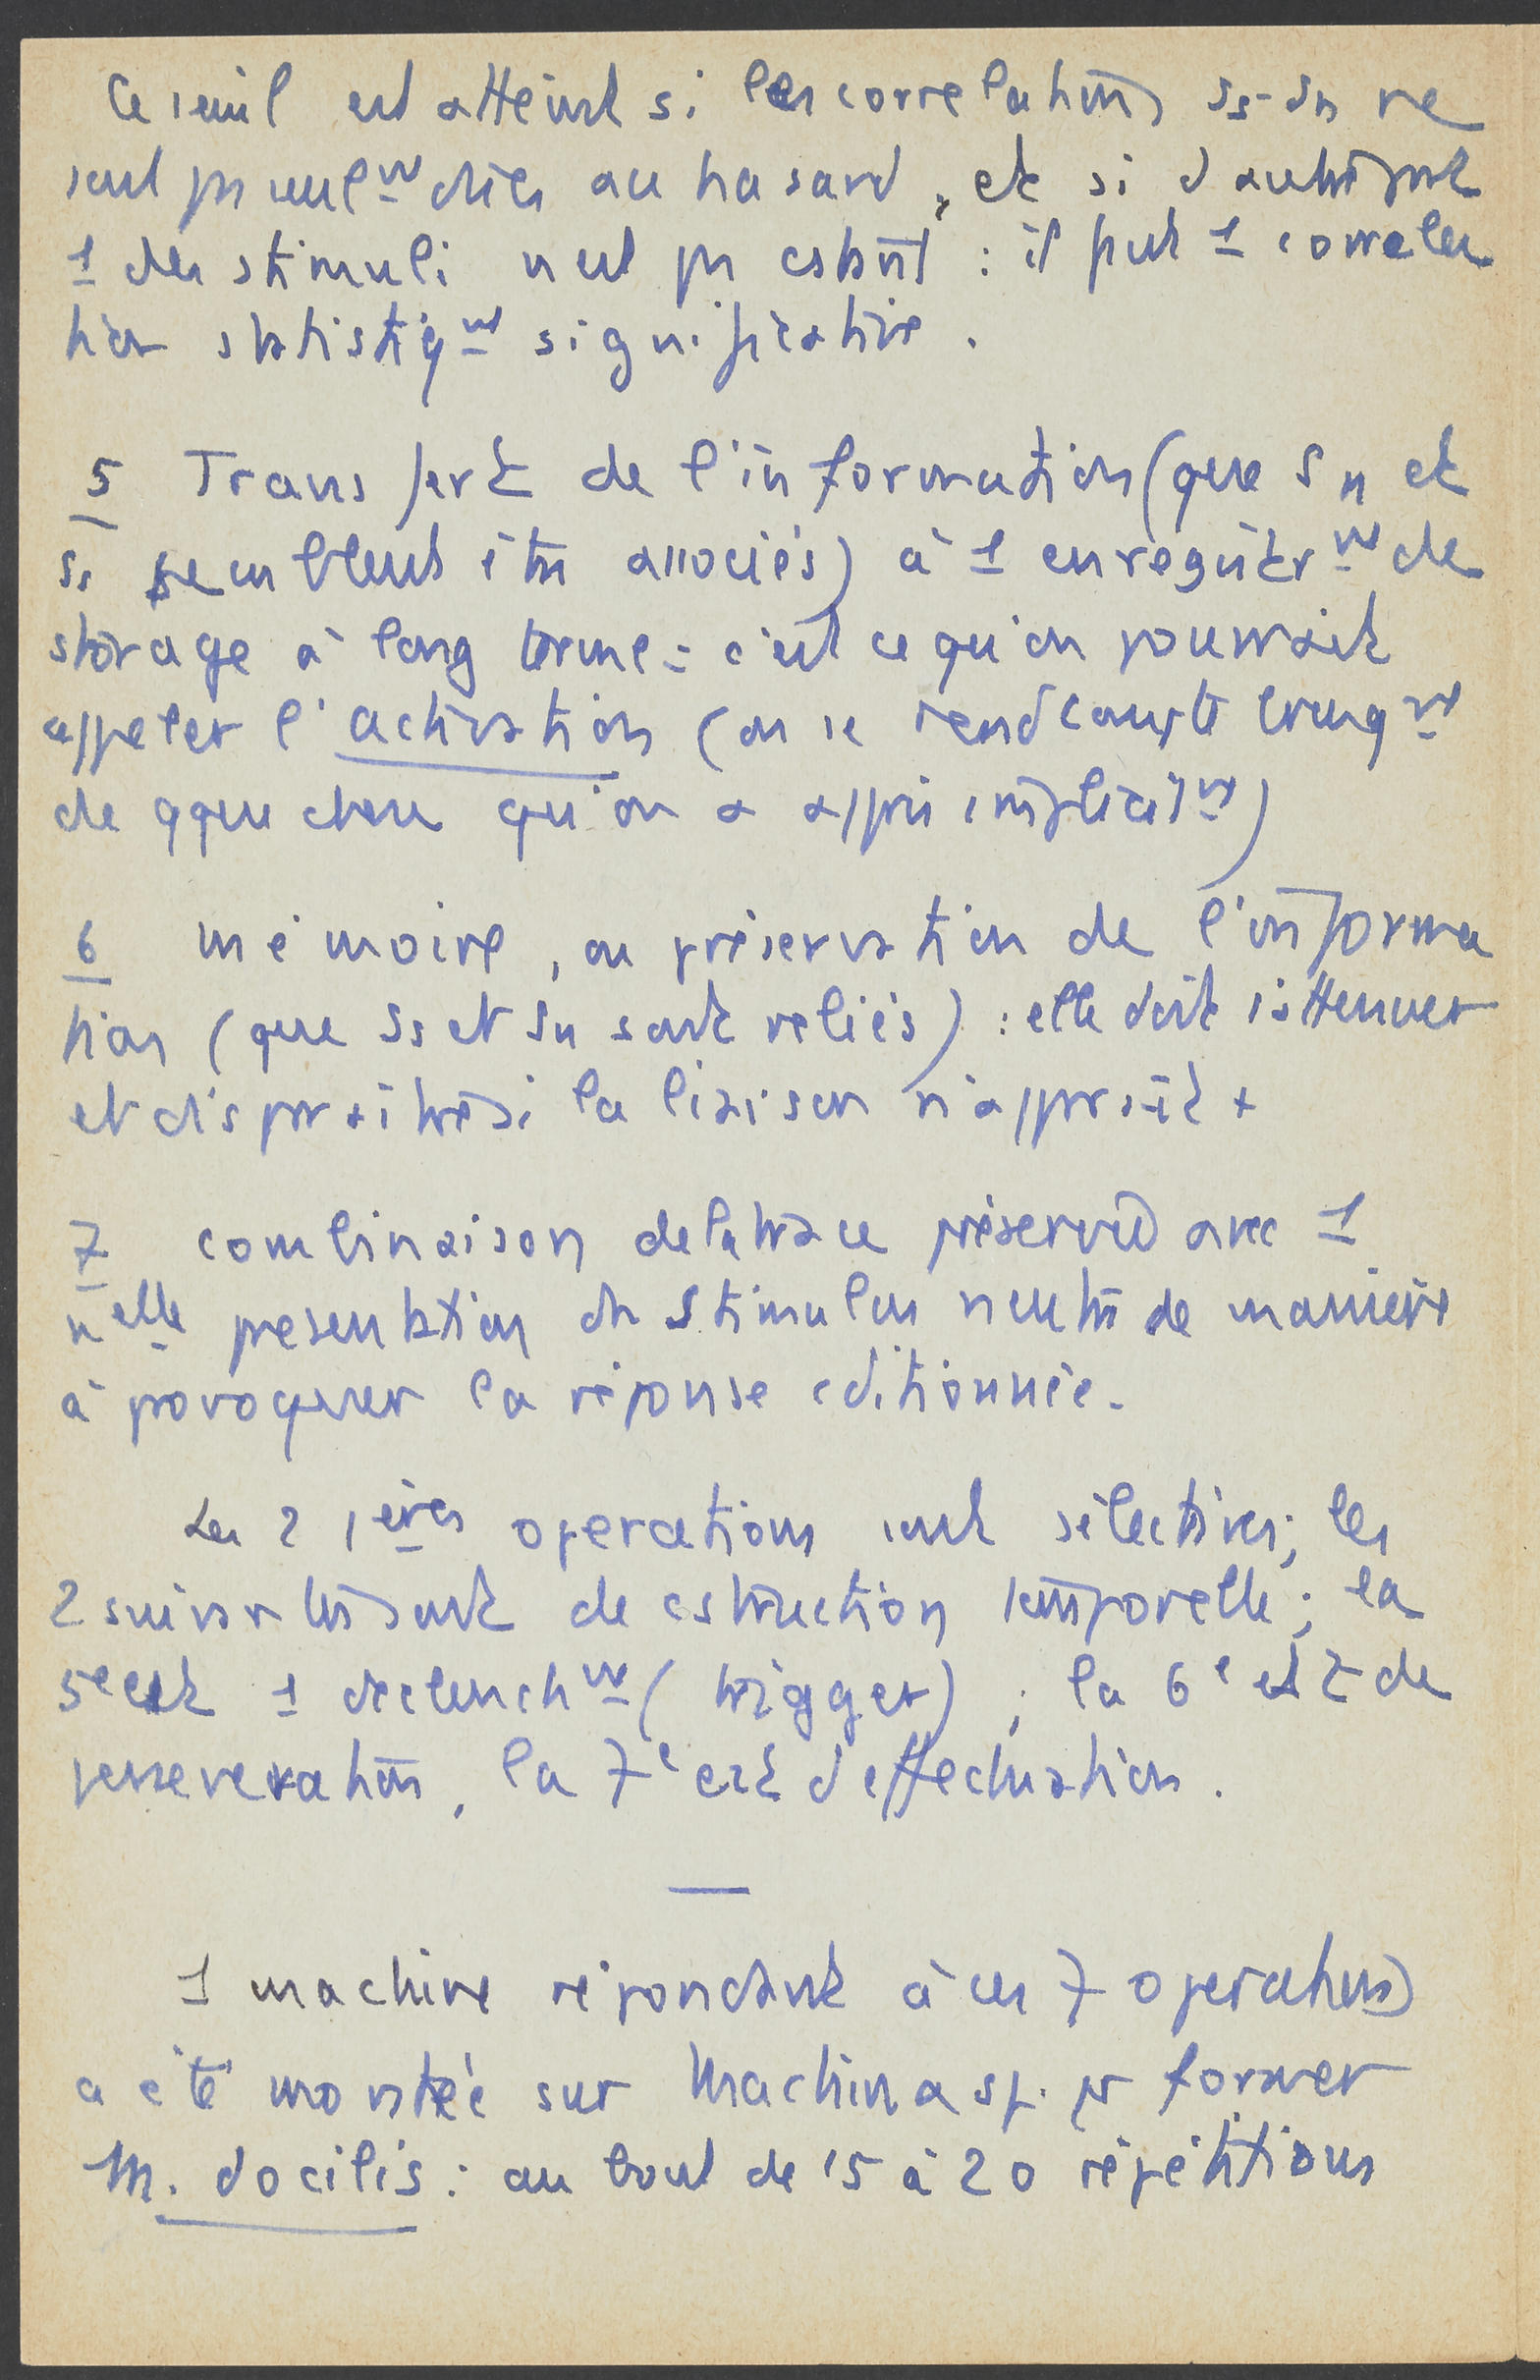 Ce seuil est atteint si les correlations Ss-Sn ne
sont pas seulᵐᵗ dûes au hasard, et si d'autre part
1 des stimuli n'est pas cstant : il faut 1 correla
tion statistiqᵐᵗ significative.
5 Transfert de l'information (que Sn et
Ss semblent être associés) à 1 enregistrᵐᵗ de
storage à long terme : c'est ce qu'on pourrait
appeler l'activation (on se rend compte brusqᵐᵗ
de qque chose qu'on a appris implicitᵐᵗ)
6 mémoire, ou préservation de l'informa
tion (que Ss et Sn sont reliés) : elle doit s'attenuer
et disparaître si la liaison n'apparaît +
7 combinaison de la trace préservée avec 1
nelle presentation du stimulus neutre de manière
à provoquer la réponse cditionnée.
Les 2 1ères operations sont sélectives; les
2 suivantes sont de cstruction temporelle; la
5e est 1 declenchᵐᵗ (trigger); la 6e est de
perseveration, la 7e est d'effectuation.
1 machine répondant à ces 7 operations
a été montée sur Machina sp. pr former
M. docilis : au bout de 15 à 20 répétitions